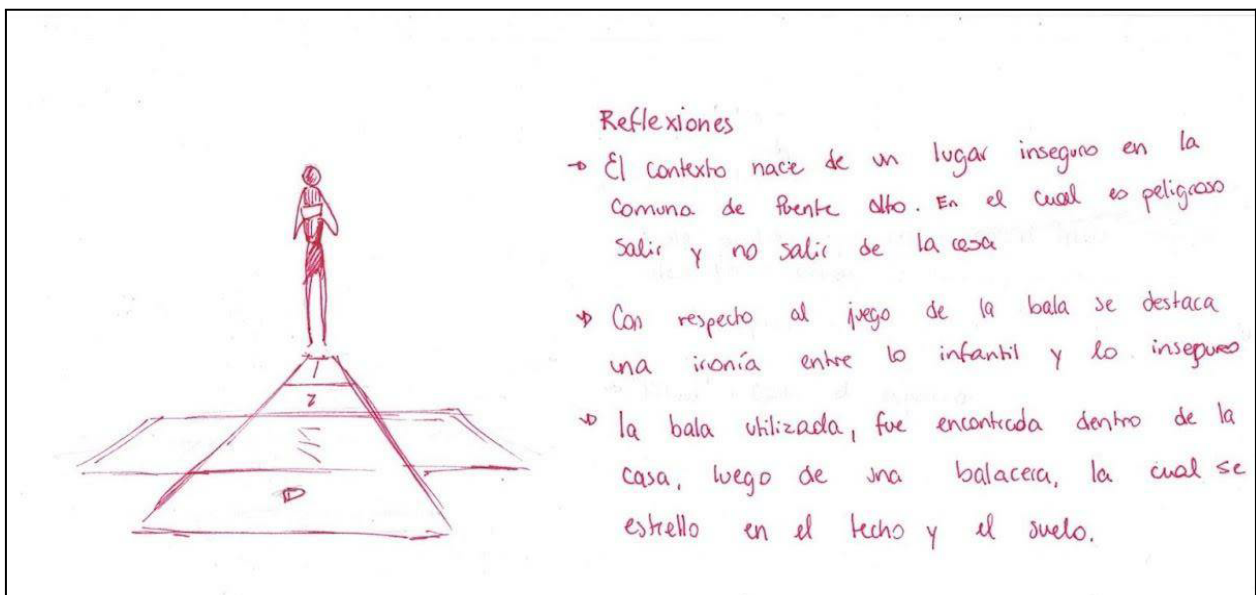 Reflexiones
→ El contexto nace de un lugar inseguro en la
comuna de Puente Alto. En el cual es peligroso
salir y no salir de la casa
→ Con respecto al juego de la bala se destaca
una ironía entre lo infantil y lo inseguro
→ la bala utilizada, fue encontrada dentro de la
casa, luego de una balacera, la cual se
estrello en el techo y el suelo.
1
2